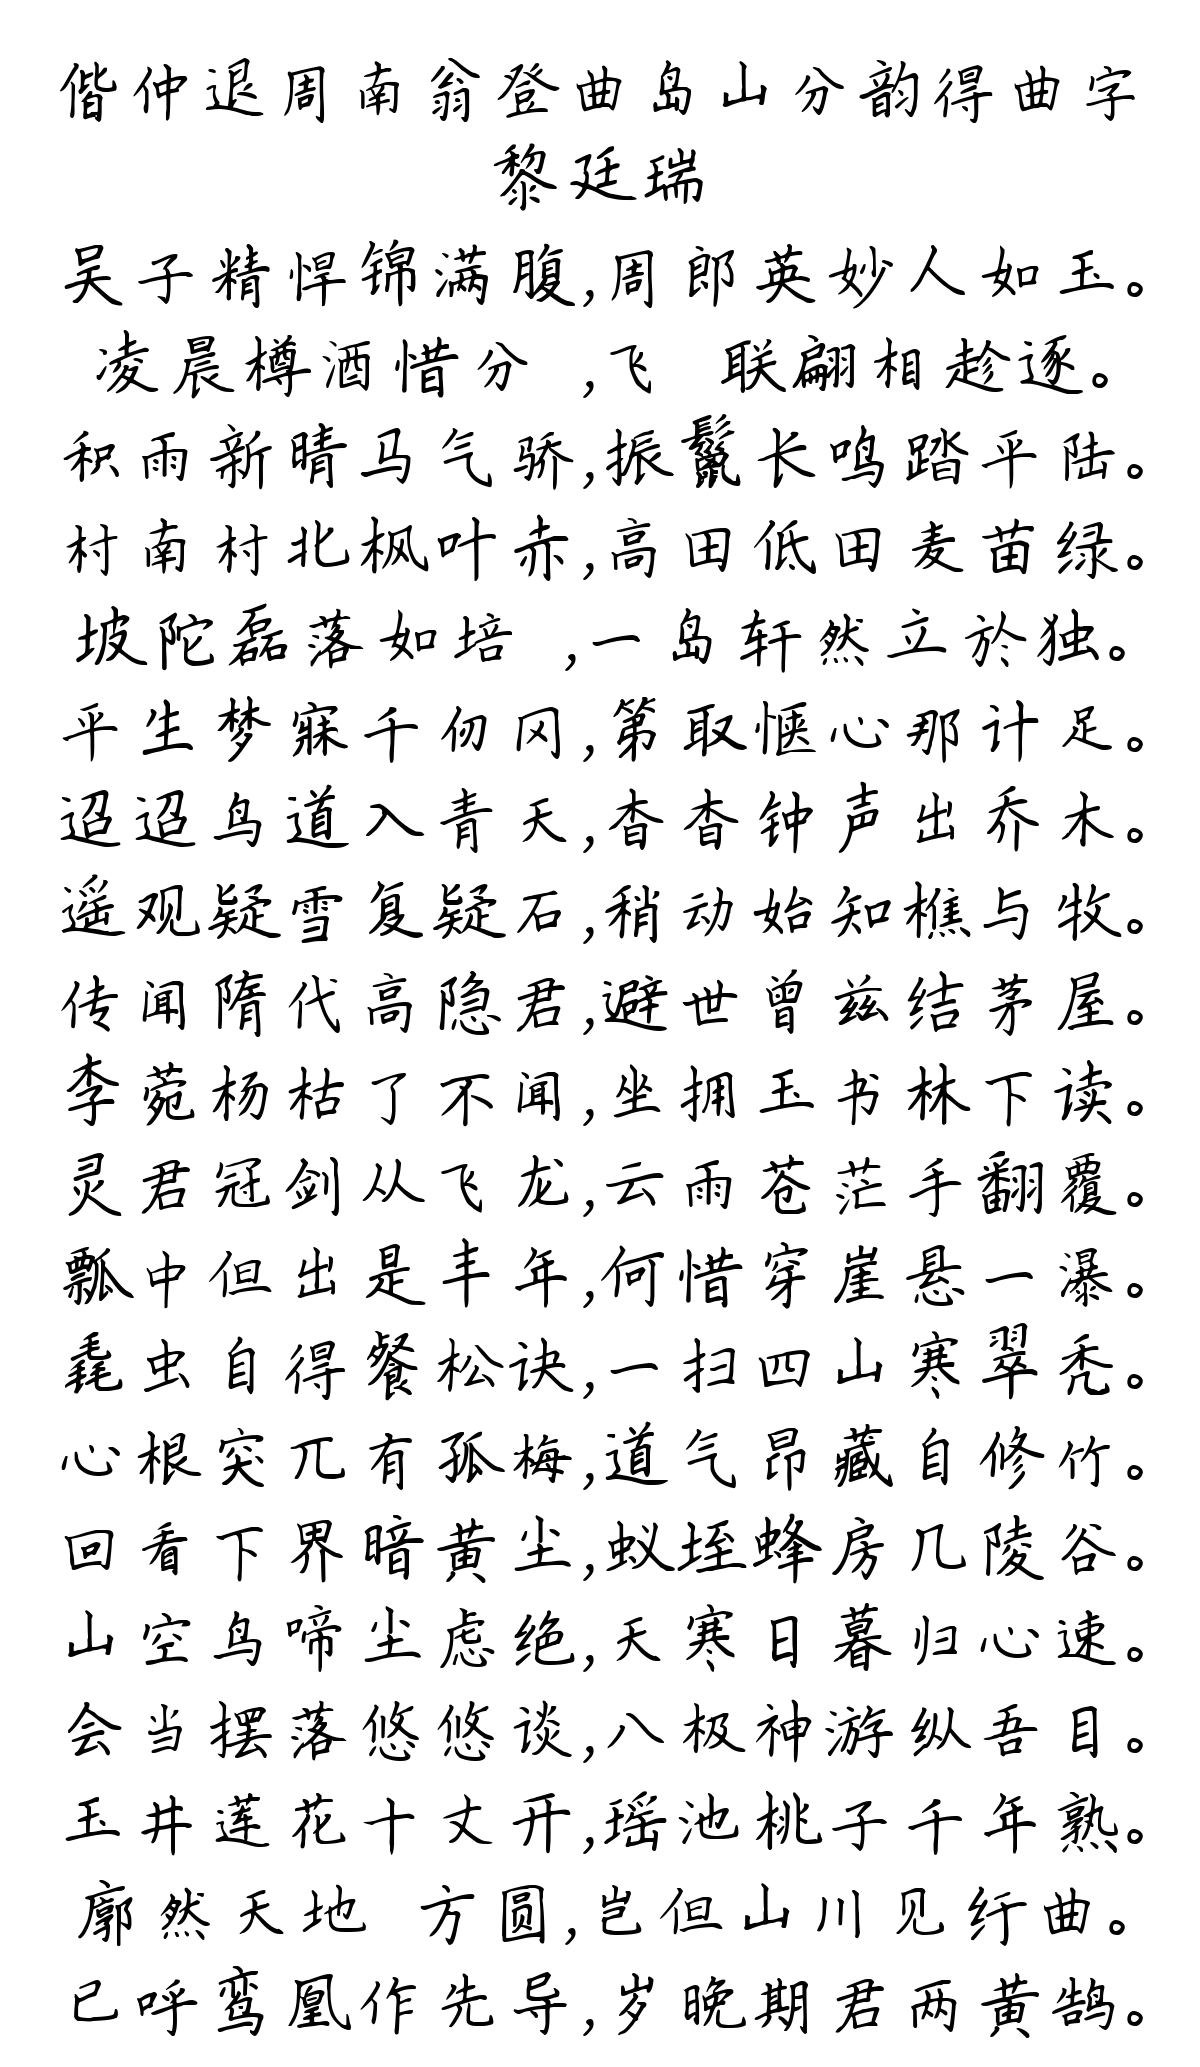 偕仲退周南翁登曲岛山分韵得曲字
黎廷瑞
吴子精悍锦满腹,周郎英妙人如玉。
凌晨樽酒惜分 ,飞 联翩相趁逐。
积雨新晴马气骄,振鬣长鸣踏平陆。
村南村北枫叶赤,高田低田麦苗绿。
坡陀磊落如培 ,一岛轩然立於独。
平生梦寐千仞冈,第取惬心那计足。
迢迢鸟道入青天,杳杳钟声出乔木。
遥观疑雪复疑石,稍动始知樵与牧。
传闻隋代高隐君,避世曾兹结茅屋。
李菀杨枯了不闻,坐拥玉书林下读。
灵君冠剑从飞龙,云雨苍茫手翻覆。
瓢中但出是丰年,何惜穿崖悬一瀑。
毳虫自得餐松诀,一扫四山寒翠秃。
心根突兀有孤梅,道气昂藏自修竹。
回看下界暗黄尘,蚁垤蜂房几陵谷。
山空鸟啼尘虑绝,天寒日暮归心速。
会当摆落悠悠谈,八极神游纵吾目。
玉井莲花十丈开,瑶池桃子千年熟。
廓然天地 方圆,岂但山川见纡曲。
已呼鸾凰作先导,岁晚期君两黄鹄。